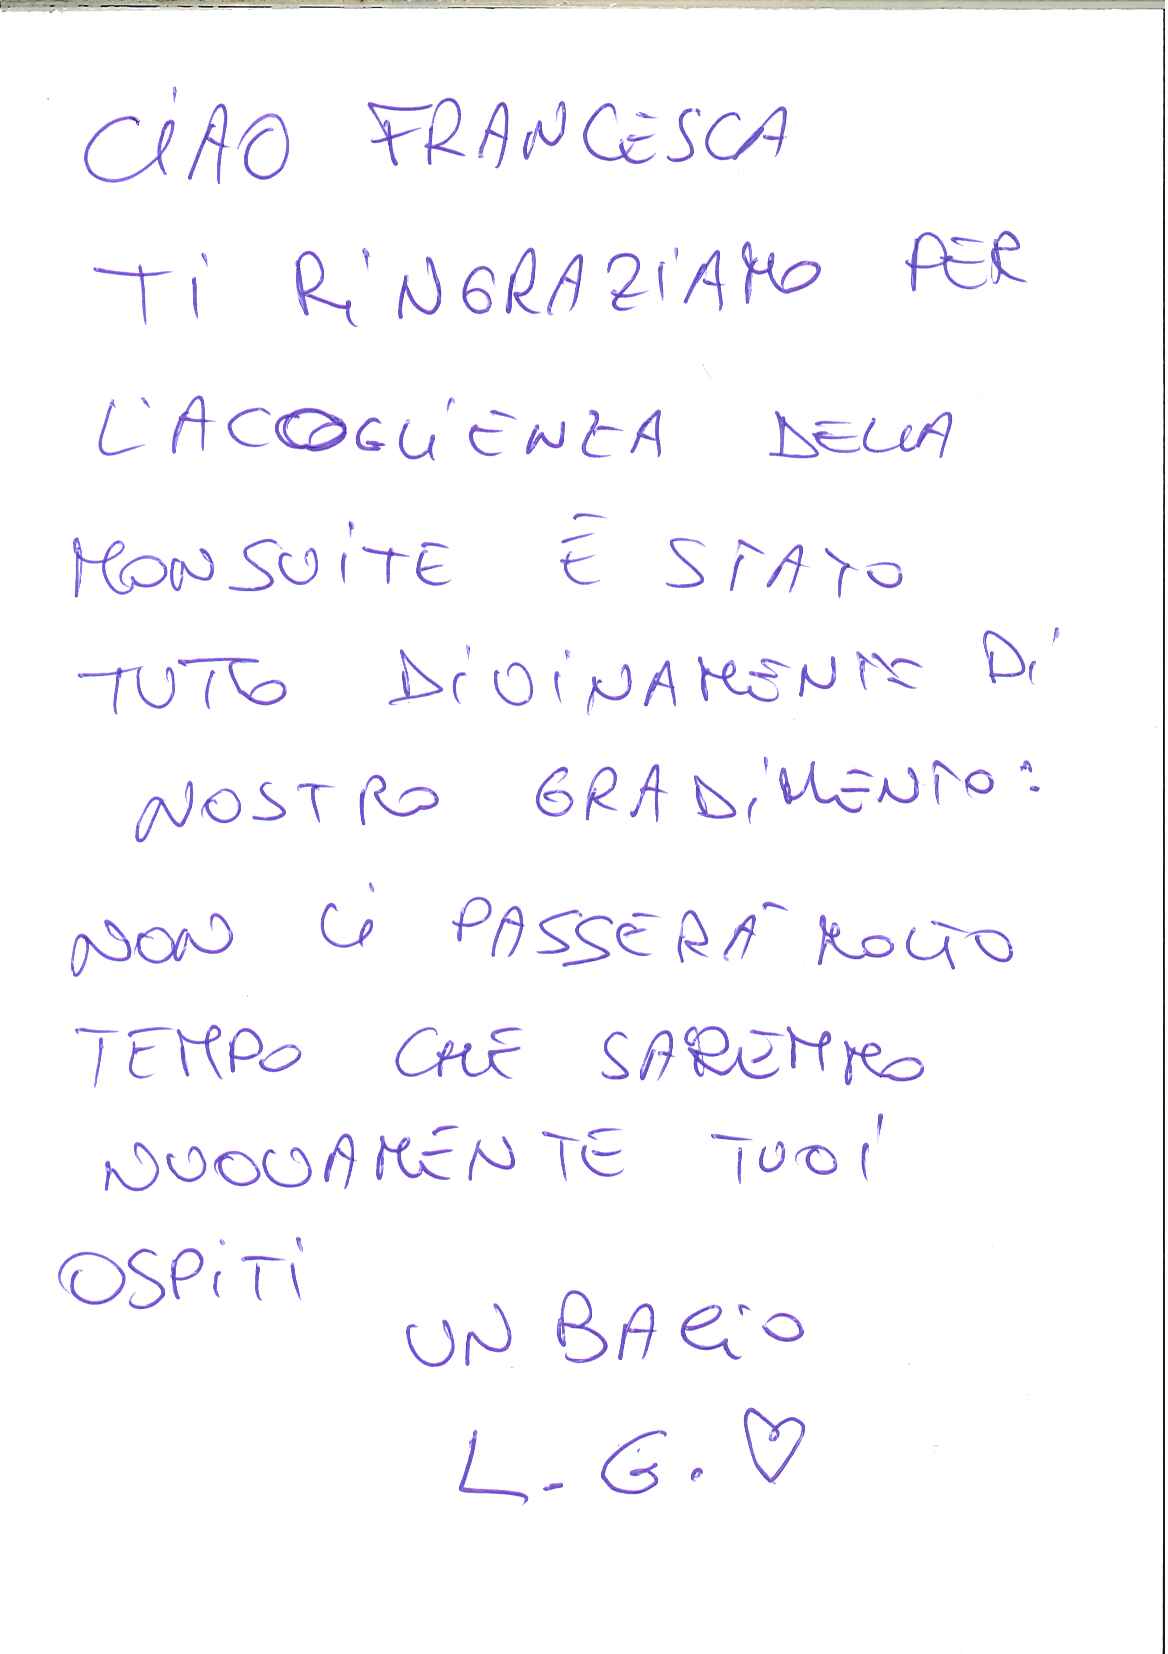 CIAO FRANCESCA
TI RINGRAZIAMO PER
L'ACCOGLIENZA DELLA
MONSUITE È STATO
TUTTO DIVINAMENTE DI
NOSTRO GRADIMENTO:
NON CI PASSERÀ MOLTO
TEMPO CHE SAREMMO
NUOVAMENTE TUOI
OSPITI
UN BACIO
L. G. ♡